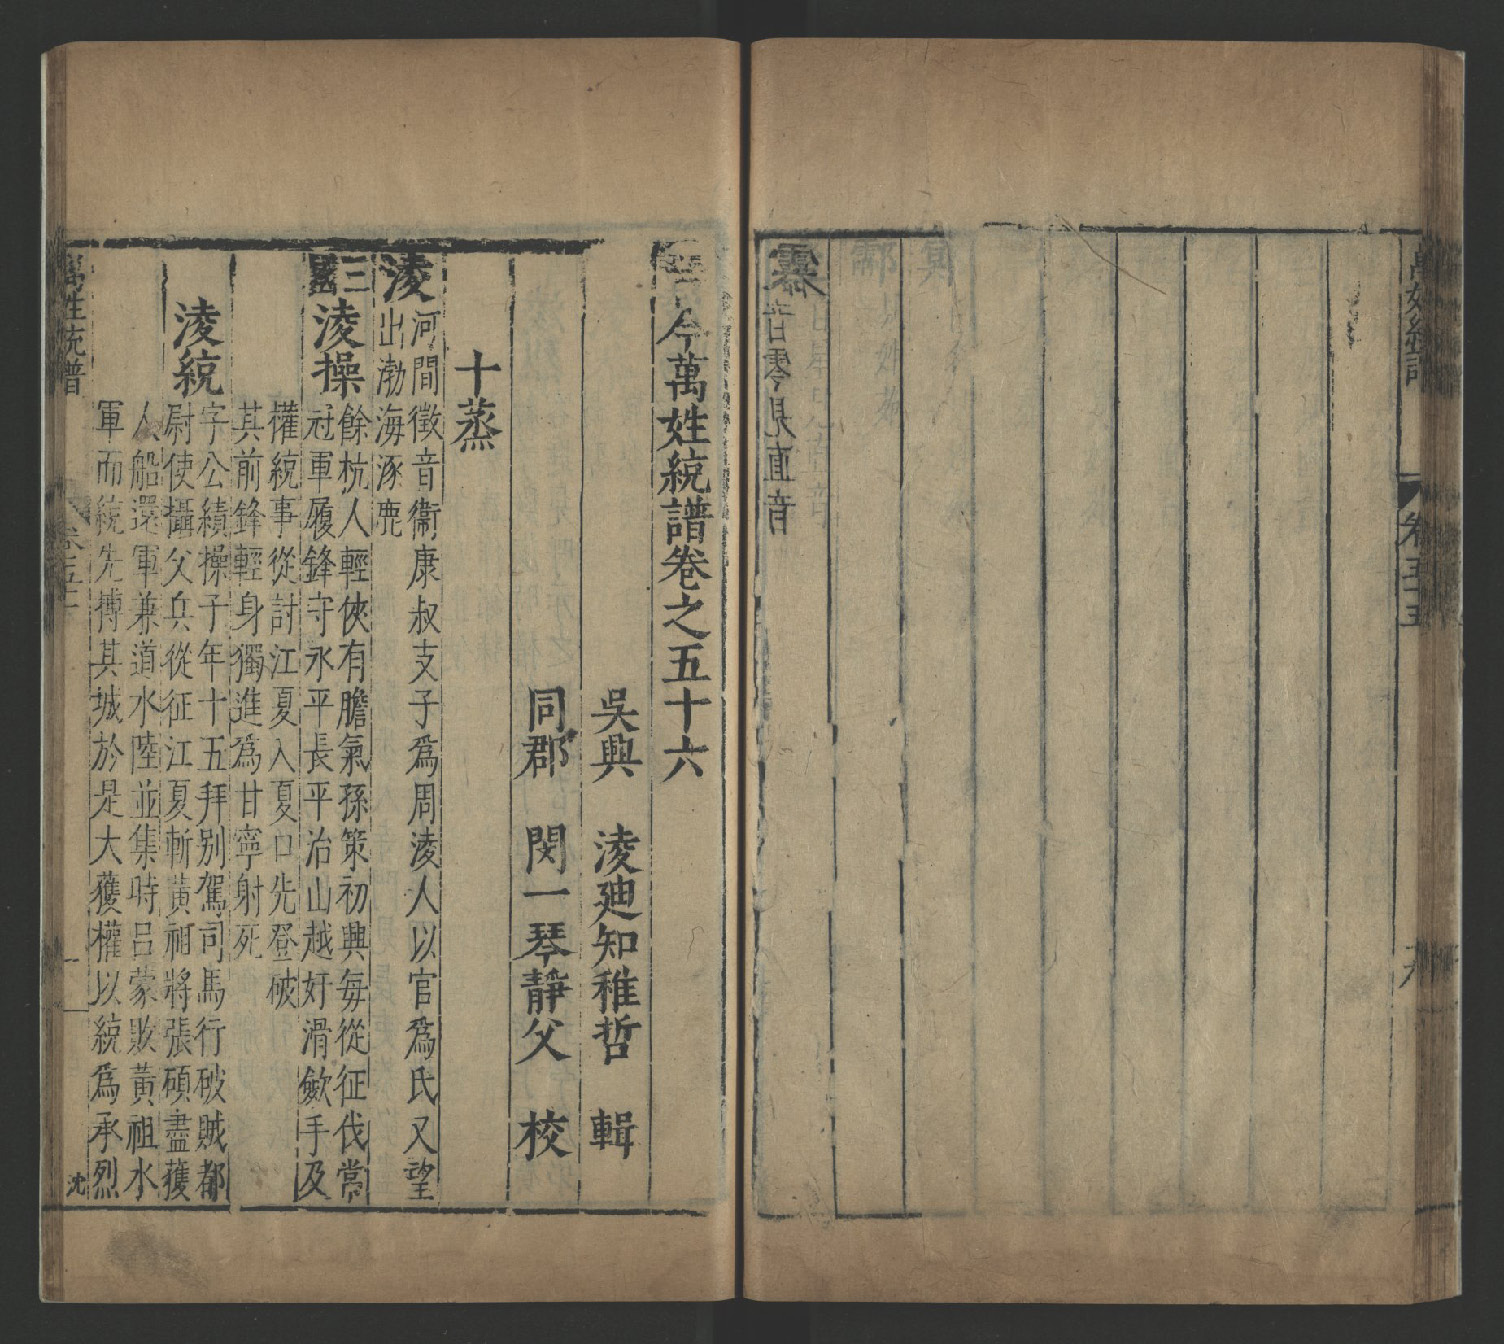 萬姓統譜
卷五十五
九
音零見直音
古今萬姓統譜卷之五十六
吳興 淩迪知稚哲 輯
同郡 閔一琴靜父 校
十蒸
淩
河間徵音衞康叔支子爲周淩人以官爲氏又望
出渤海涿鹿
三國
淩操
餘杭人輕俠有膽氣孫策初興每從征伐常
冠軍履鋒守永平長平治山越奸滑斂手及
權統事從討江夏入夏口先登破
其前鋒輕身獨進爲甘寧射死
淩統
字公績操子年十五拜别駕司馬行破賊都
尉使攝父兵從征江夏斬黃祖將張碩盡獲
人船還軍兼道水陸並集時吕蒙敗黃祖水
軍而統先搏其城於是大獲權以統爲承烈
萬姓統譜
沈